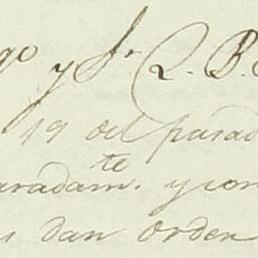 go y Sr. Q. B.
19 del pasad
aradamte. y con
s dan orden